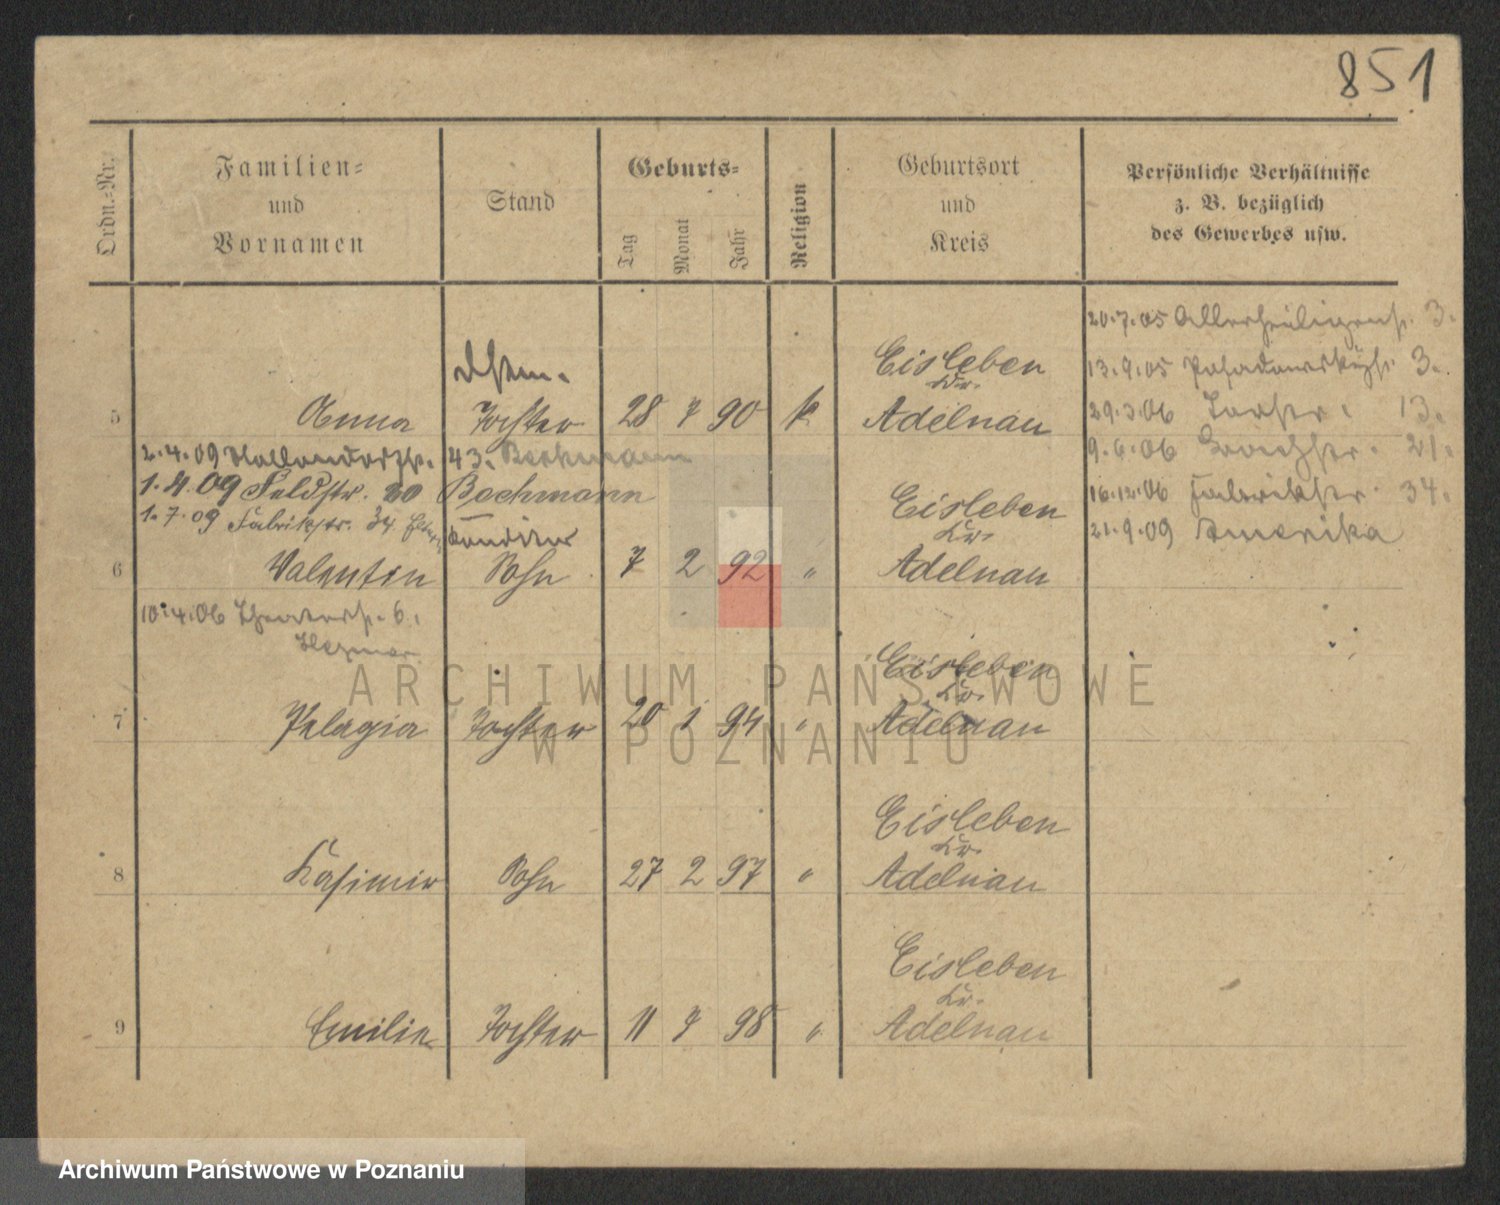 851
Ordn.-Nr.
Familien-
und
Vornamen
Stand
Geburts-
Tag
Monat
Jahr
Religion
Geburtsort
und
Kreis
Persönliche Verhältnisse
z. B. bezüglich
des Gewerbes usw.
20.7.05 Allerheiligenst. 3.
Eisleben
13.9.05 3.
Kr.
5 Anna Tochter 28 7 90 k Adelnau
29.3.06 13.
2.4.09 43. Beckmann
9.6.06 21.
1.4.09 Feldstr. 20 Bachmann
Eisleben
16.12.06 Fabrikstr. 34.
1.7.09 Fabrikstr. 34
Kr.
21.9.09 Amerika
6 Valentin Sohn 7 2 92 " Adelnau
10.4.06 Theaterst. 6.
Eisleben
Kr.
7 Pelagia Tochter 20 1 94 " Adelnau
Eisleben
Kr.
8 Kasimir Sohn 27 2 97 " Adelnau
Eisleben
Kr.
9 Emilie Tochter 11 7 98 " Adelnau
ARCHIWUM PAŃSTWOWE
W POZNANIU
Archiwum Państwowe w Poznaniu